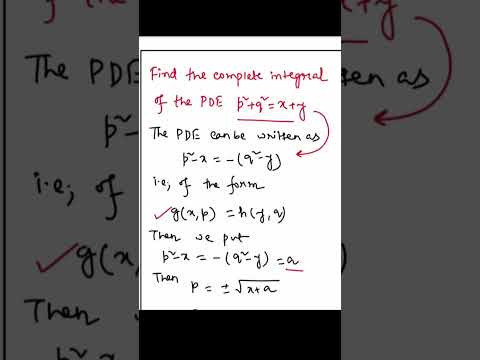 Find the complete integral
of the PDE p²+q²=x+y
The PDE can be written as
p²-x = -(q²-y)
i.e; of the form
✓g(x,p) = h(y,q)
Then we put
p²-x = -(q²-y) = a
Then p = ±√x+a
The PDE
ten as
p²
i.e; of
✓g(x
Then